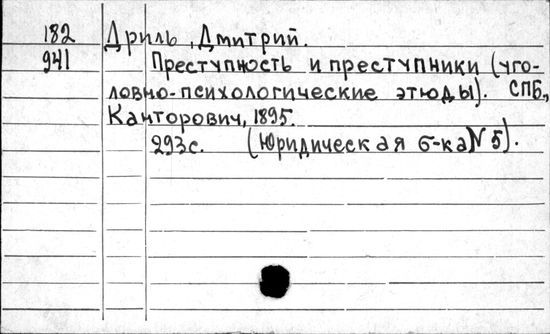 182 Дриль, Дмитрий.
941 Преступность и преступники (уго-
ловно-психологические этюды). СПБ.,
Канторович, 1895.
293с. (Юридическая б-ка N 5).